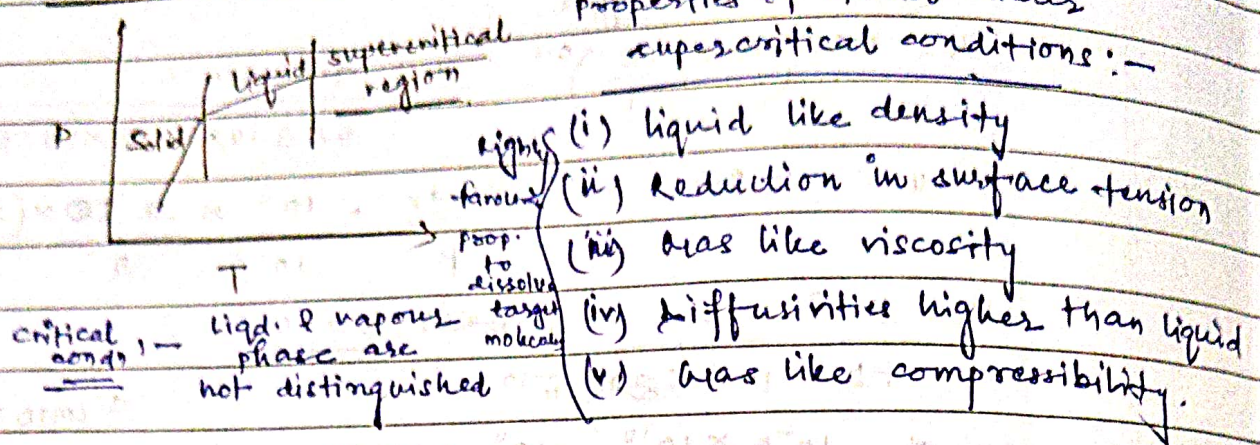 supercritical conditions :-
P
Solid
Liquid
supercritical
region
T
critical condn, - liqd. & vapour
phase are
not distinguished
Higher
favour
prop.
to
dissolve
target
(i) liquid like density
(ii) Reduction in surface tension
(iii) Gas like viscosity
(iv) Diffusivities higher than liquid
(v) Gas like compressibility.